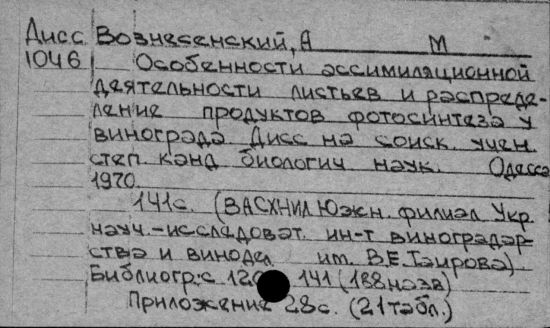 Дисс Вознесенский, А М
1046 Особенности ассимиляционной
деятельности листьев и распреде-
ление продуктов фотосинтеза у
винограда Дисс на соиск. учен.
степ. канд биологич наук. Одесса
1970
141с. (ВАСХНИЛ Южн. филиал Укр.
науч.-исследоват. ин-т виноградар-
ства и винодел им. В.Е. Таирова)
Библиогр: с. 141 (188 назв)
Приложение 28с. (21 табл.)